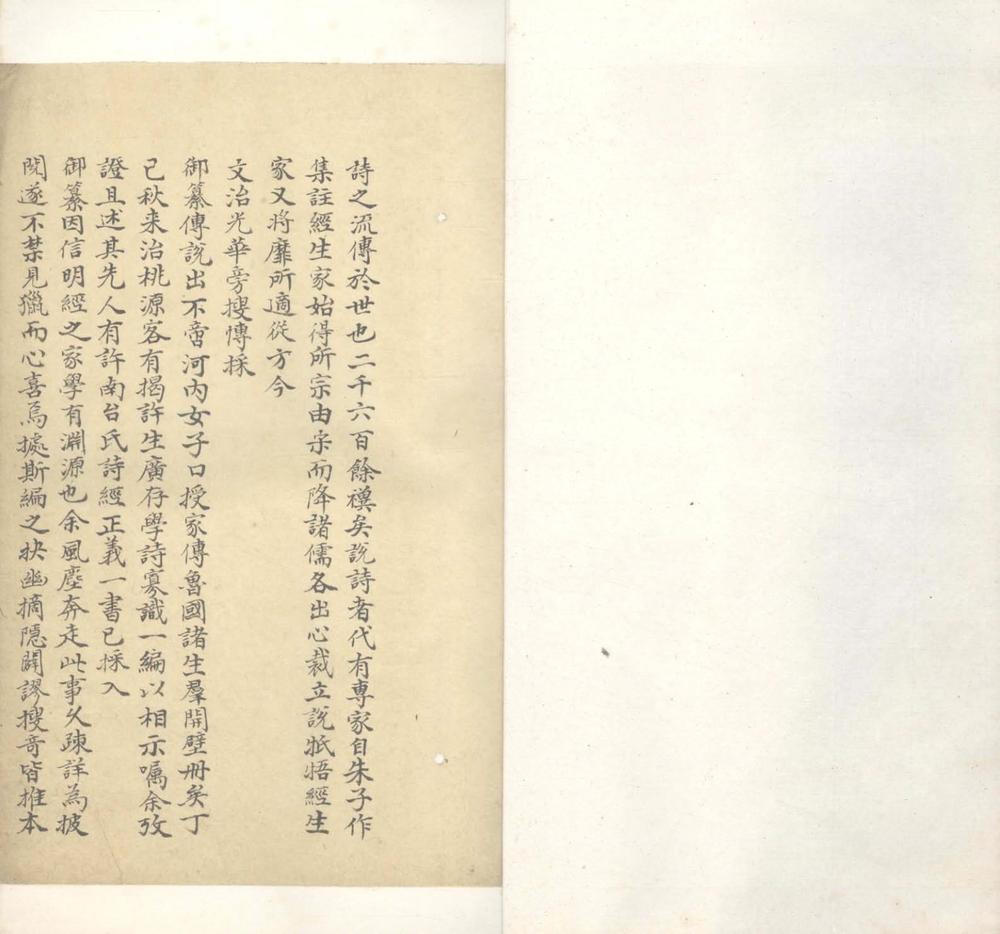 詩之流傳於世也二千六百餘禩矣說詩者代有專家自朱子作
集註經生家始得所宗由宋而降諸儒各出心裁立說牴牾經生
家又將靡所適從方今
文治光華旁搜慱採
御纂傳說出不啻河內女子口授家傳魯國諸生羣開壁冊矣丁
已秋来治桃源客有揭許生廣存學詩寡識一編以相示囑余攷
證且述其先人有許南台氏詩經正義一書已採入
御纂因信明經之家學有淵源也余風塵奔走此事久疎詳為披
閱遂不禁見獵而心喜焉據斯編之抉幽摘隱闢謬搜竒皆推本